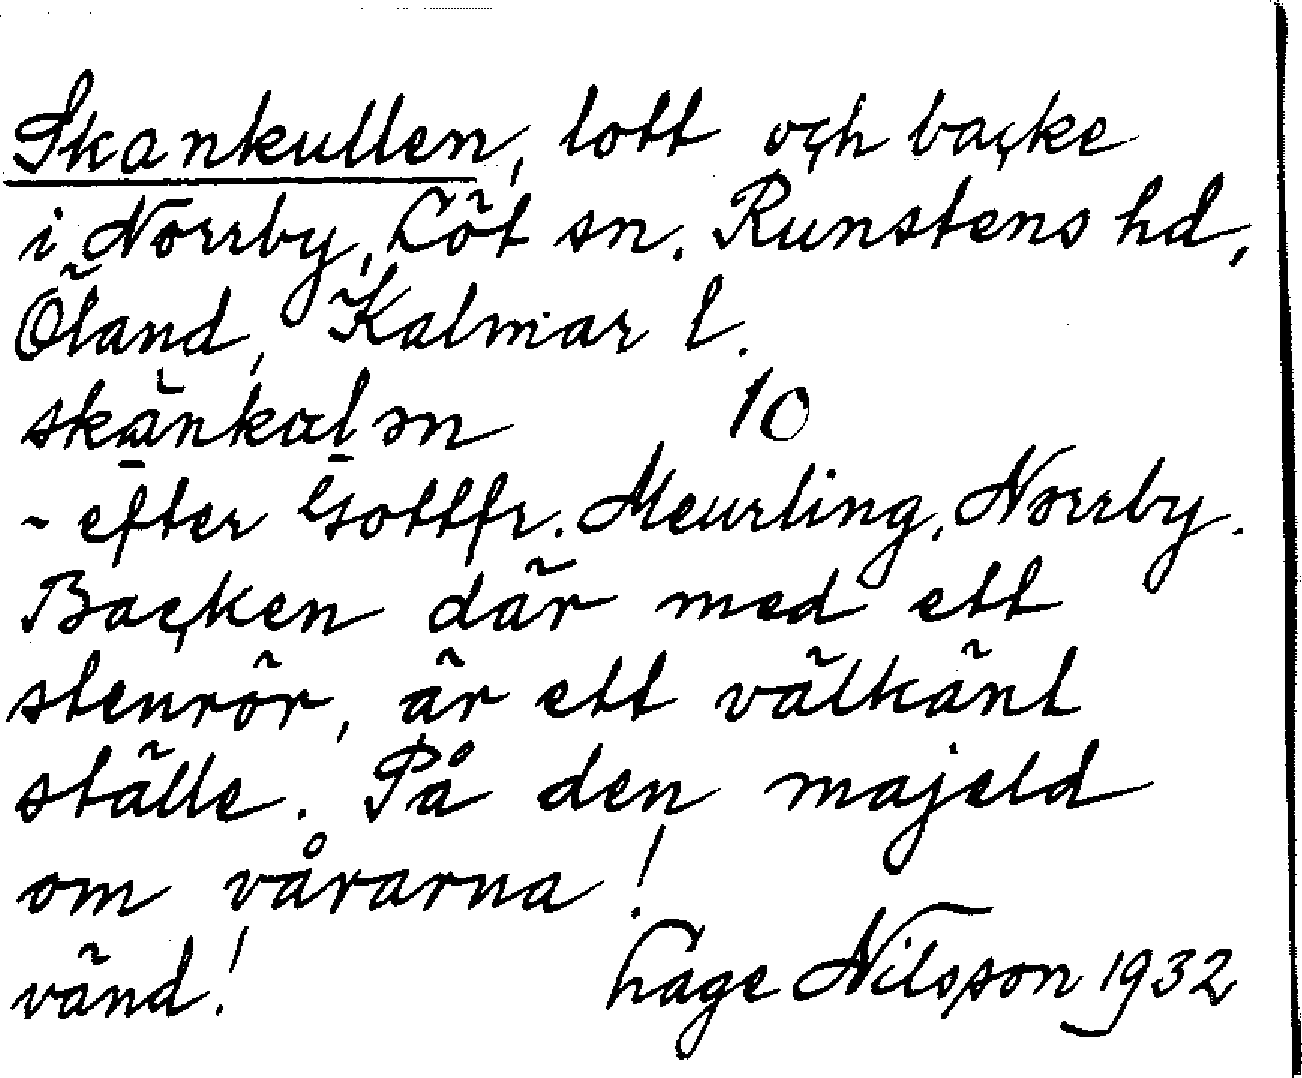 Skankullen, lott och backe
i Norrby, Löt sn. Runstens hd,
Öland, Kalmar l.
skänkalm 10
- efter Gottfr. Meurling, Norrby.
Backen där med ett
stenrör, är ett välkänt
ställe. På den majeld
om vårarna!
vänd! Hage Nilsson 1932